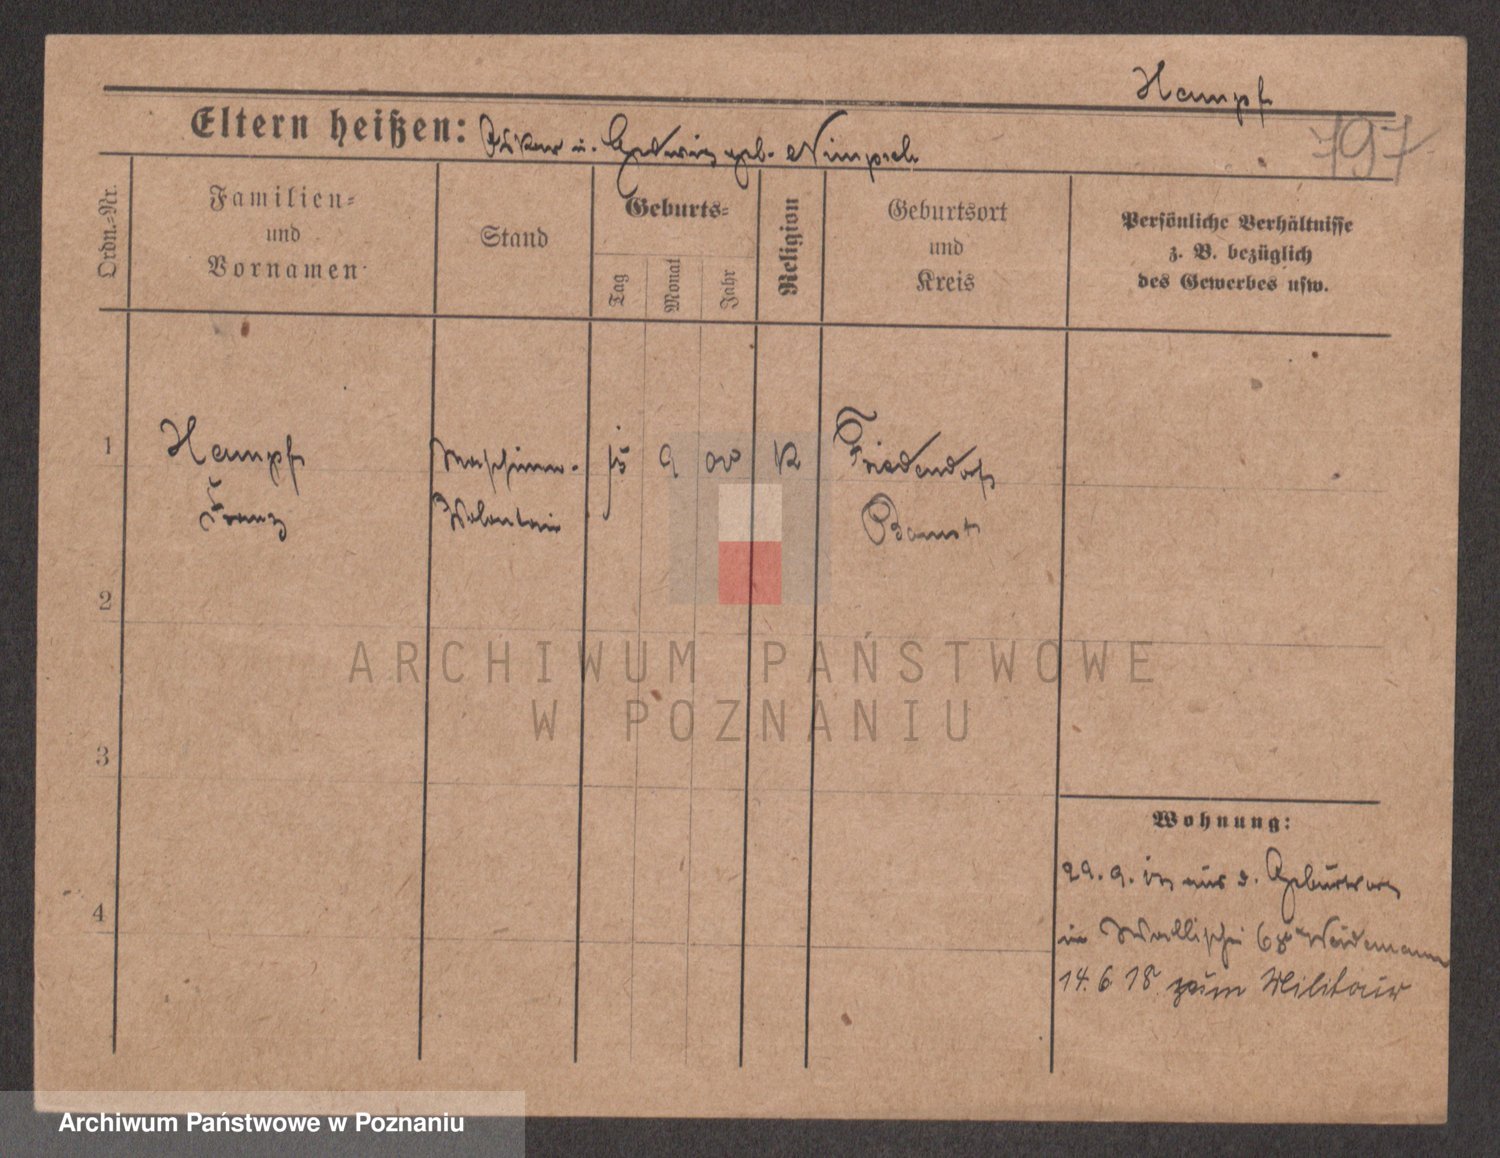 Hampf
797
Eltern heißen: Oskar u. Hedwig geb. Nimpsch
Ordn.=Nr.
Familien=
und
Vornamen
Stand
Geburts=
Tag
Monat
Jahr
Religion
Geburtsort
und
Kreis
Persönliche Verhältnisse
z. B. bezüglich
des Gewerbes usw.
1
Hampf
Franz
Maschinen-
Volontair
9
00
K
Friedendorf
Bomst
2
3
4
ARCHIWUM PAŃSTWOWE
W POZNANIU
Wohnung:
29. 9. aus d. Geburtsort
in Wallischei 68 Weidemann
14. 6. 18. zum Militair
Archiwum Państwowe w Poznaniu